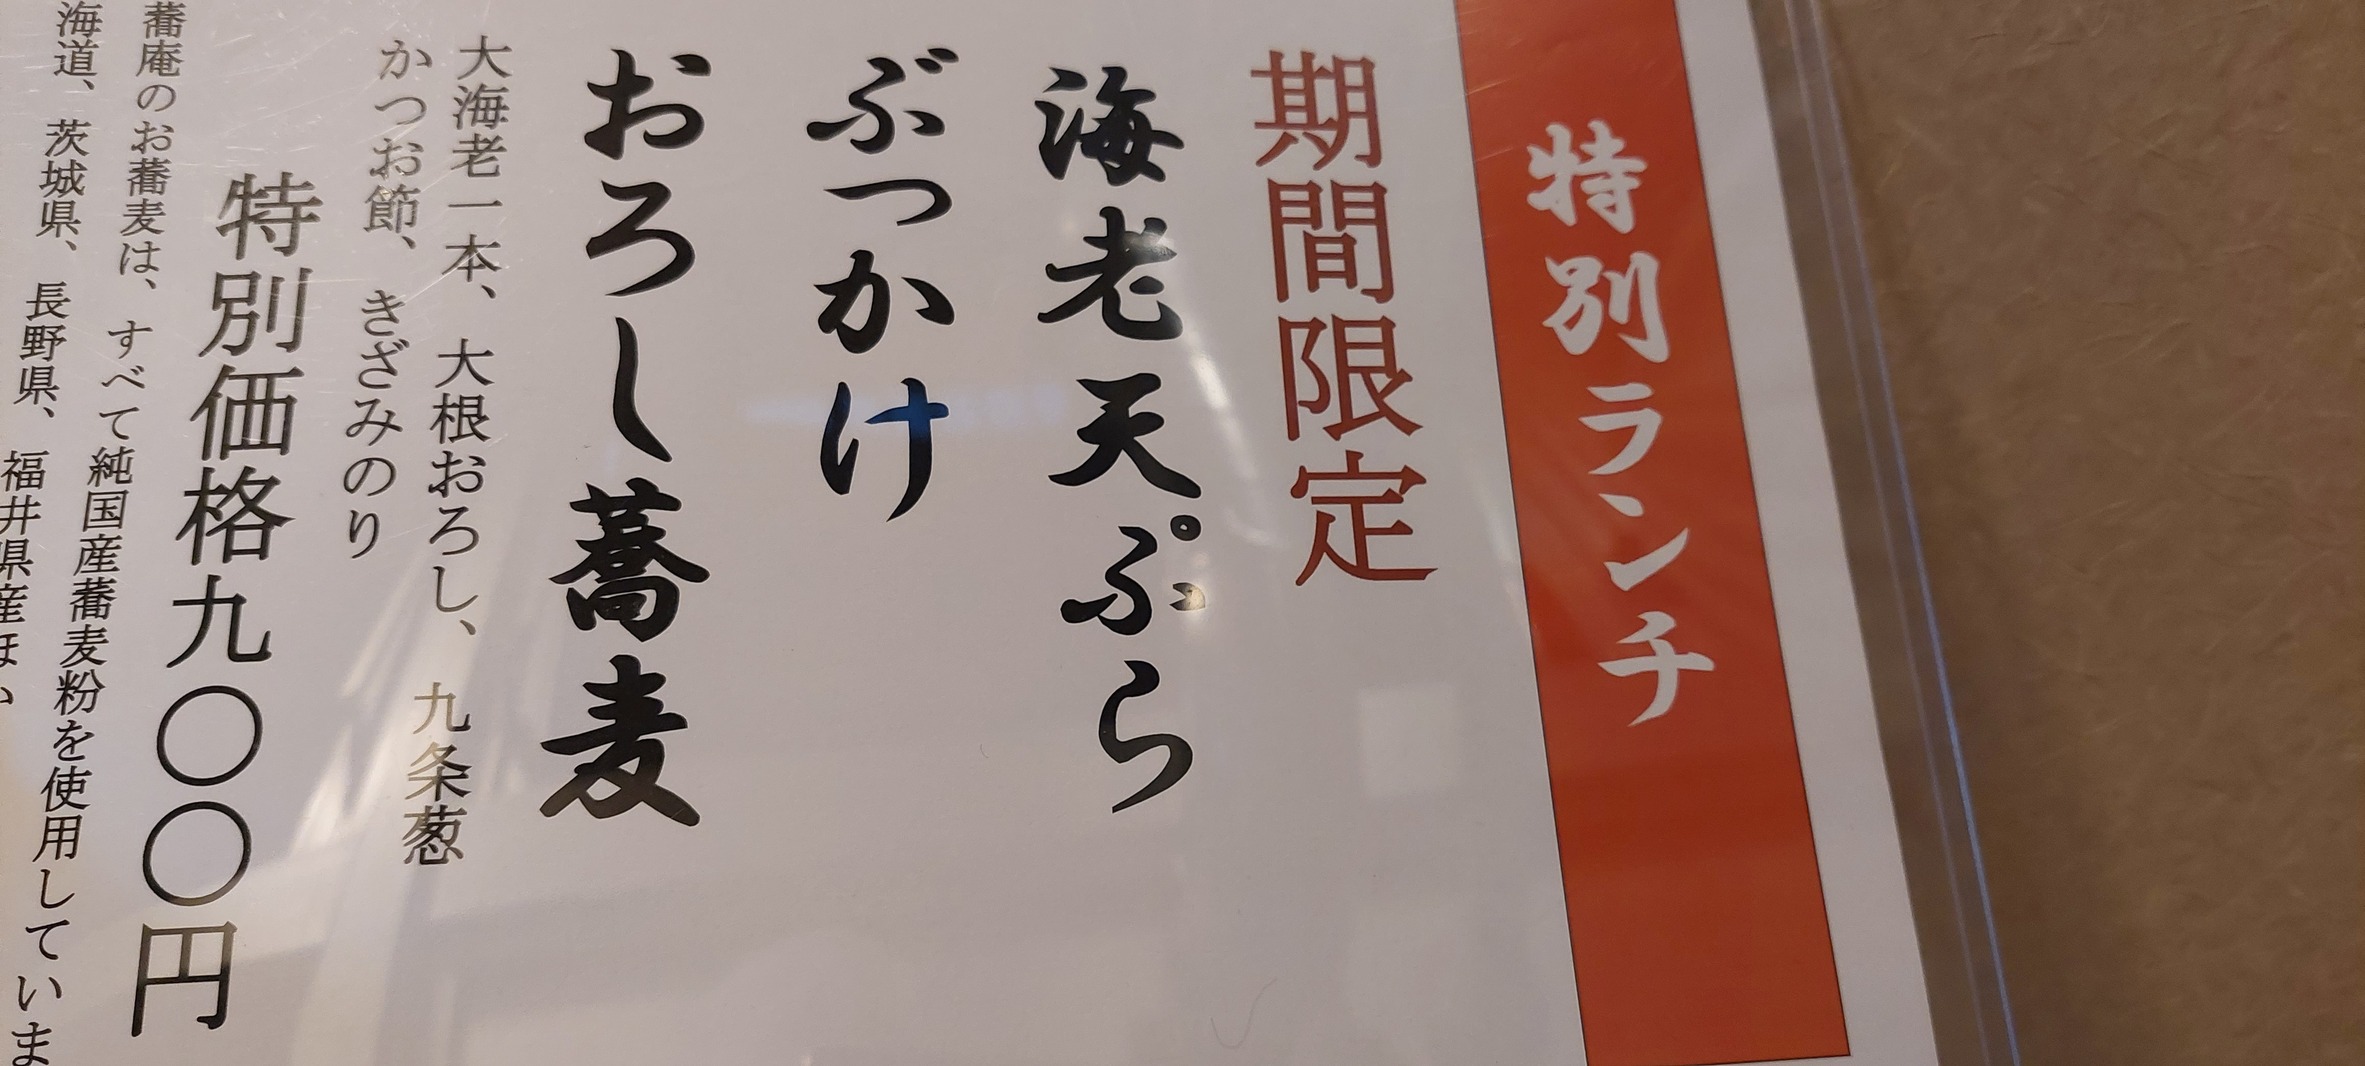 特別ランチ
期間限定
海老天ぷら
ぶっかけ
おろし蕎麦
大海老一本、大根おろし、九条葱
かつお節、きざみのり
特別価格九〇〇円
蕎庵のお蕎麦は、すべて純国産蕎麦粉を使用していま
海道、茨城県、長野県、福井県産ほか